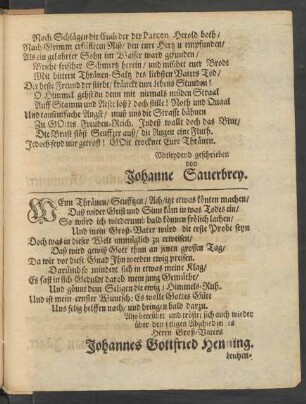 Nach Schlägen die Euch der der Parcen Herold both/
Nach Grimm erfülltem Riß/ den eure Hertz u empfunden/
Als ein gelahrter Sohn im Wasser ward gefunden/
Bricht frischer Schmertz herein/ und mischet eure Brodt
Mit bittern Thränen-Saltz des liebsten Vaters Tod/
Der beste Freund der stirbt/ kränckt eure lebens Stunden!
O Himmel gehst du denn mit niemals milden Straal
Auff Stamm und Aeste loß? doch stille! Noth und Quaal
Und tausendfache Angst/ muß uns die Strasse bähnen
Zu Gottes Freuden-Reich. Indeß wallt doch das Blut/
Die Brust stöst Seuffzer auß/ die Augen eine Fluth.
Jedoch seyd nur getrost! GOtt trocknet Eure Thränen.
Mitleydend geschrieben
von
Johanne Sauerbrey.
WEnn Thränen/ Seufftzen/ Ach/ itzt etwas könten machen/
Daß wider Geist und Sinn käm in was Todes ist/
So würd ich wiederumb bald können frölich lachen/
Und mein Groß-Vater würd die erste Probe seyn
Doch was in dieser Welt unmüglich zu erweisen/
Daß wird gewiß Gott thun an jenen grossen Tag/
Da wir vor diese Gnad Ihn werden ewig preisen.
Darümb so mindert sich in etwas meine Klag/
Es fast in sich Gedult darob mein jung Gemüthe/
Und gönnt dem Seligen die ewig/ Himmels-Ruh.
Und ist mein ernster Wuntsch: Es wolle Gottes Güte
Uns selig helffen nach/ und bringen bald darzu.
Also betrübte und tröstete sich auch wieder
über den seligen Abschied seines
Herrn Groß-Vaters
Johannes Gottfried Henning.